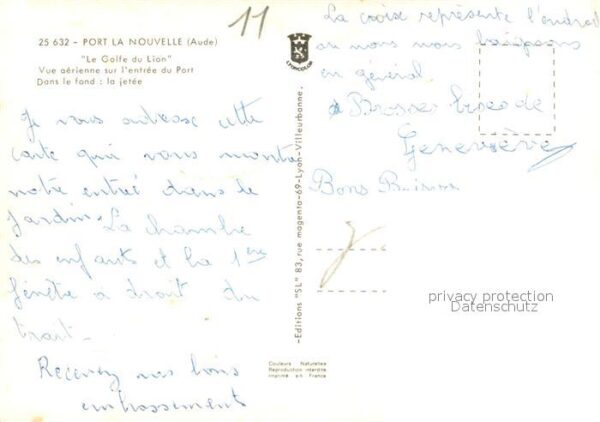 11
25 632 - PORT LA NOUVELLE (Aude)
"Le Golfe du Lion"
Vue aérienne sur l'entrée du Port
Dans le fond : la jetée
Je vous adresse cette
carte qui vous montre
notre entrée dans le
Jardin. La chambre
des enfants et la 1ère
fenêtre à droit du
trait.
Recevez nos bons
embrassements
LYONCOLOR
-Editions "SL" 83, rue magenta-69-Lyon-Villeurbanne.
Couleurs Naturelles
Reproduction interdite
Imprimé en France
La croise représente l'endroit
où nous nous baignons
en général.
Bises de
Geneviève
Bons Baisers
privacy protection
Datenschutz